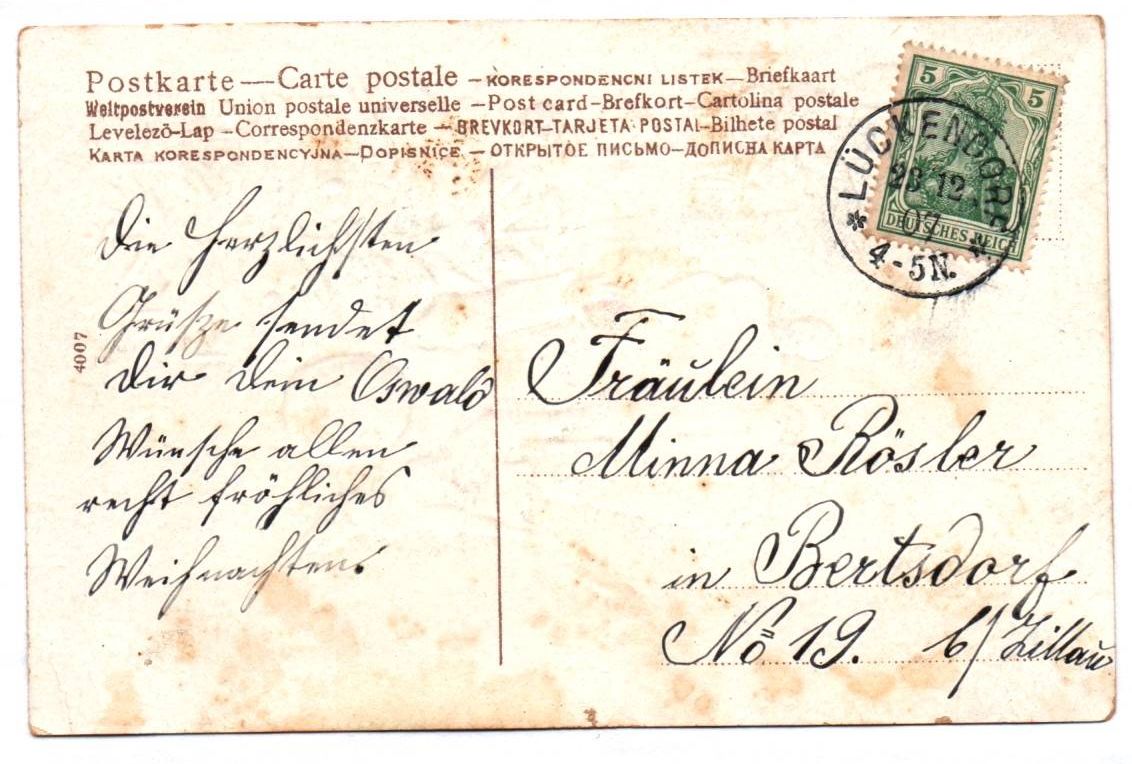 Postkarte — Carte postale – KORESPONDENCNI LISTEK — Briefkaart
Weltpostverein Union postale universelle – Post card – Brefkort – Cartolina postale
Levelező-Lap – Correspondenzkarte – BREVKORT – TARJETA POSTAL – Bilhete postal
KARTA KORESPONDENCYJNA – DOPISNICE – ОТКРЫТОЕ ПИСЬМО – ДОПИСНА КАРТА
5 5
DEUTSCHES REICH
* LÜCKENDORF *
12
07
4-5N.
4007
Die herzlichsten
Grüsze sendet
dir dein Oswald
Wünsche allen
recht fröhliches
Weihnachten
Fräulein
Minna Rösler
in Bertsdorf
No 19. b/ Zittau